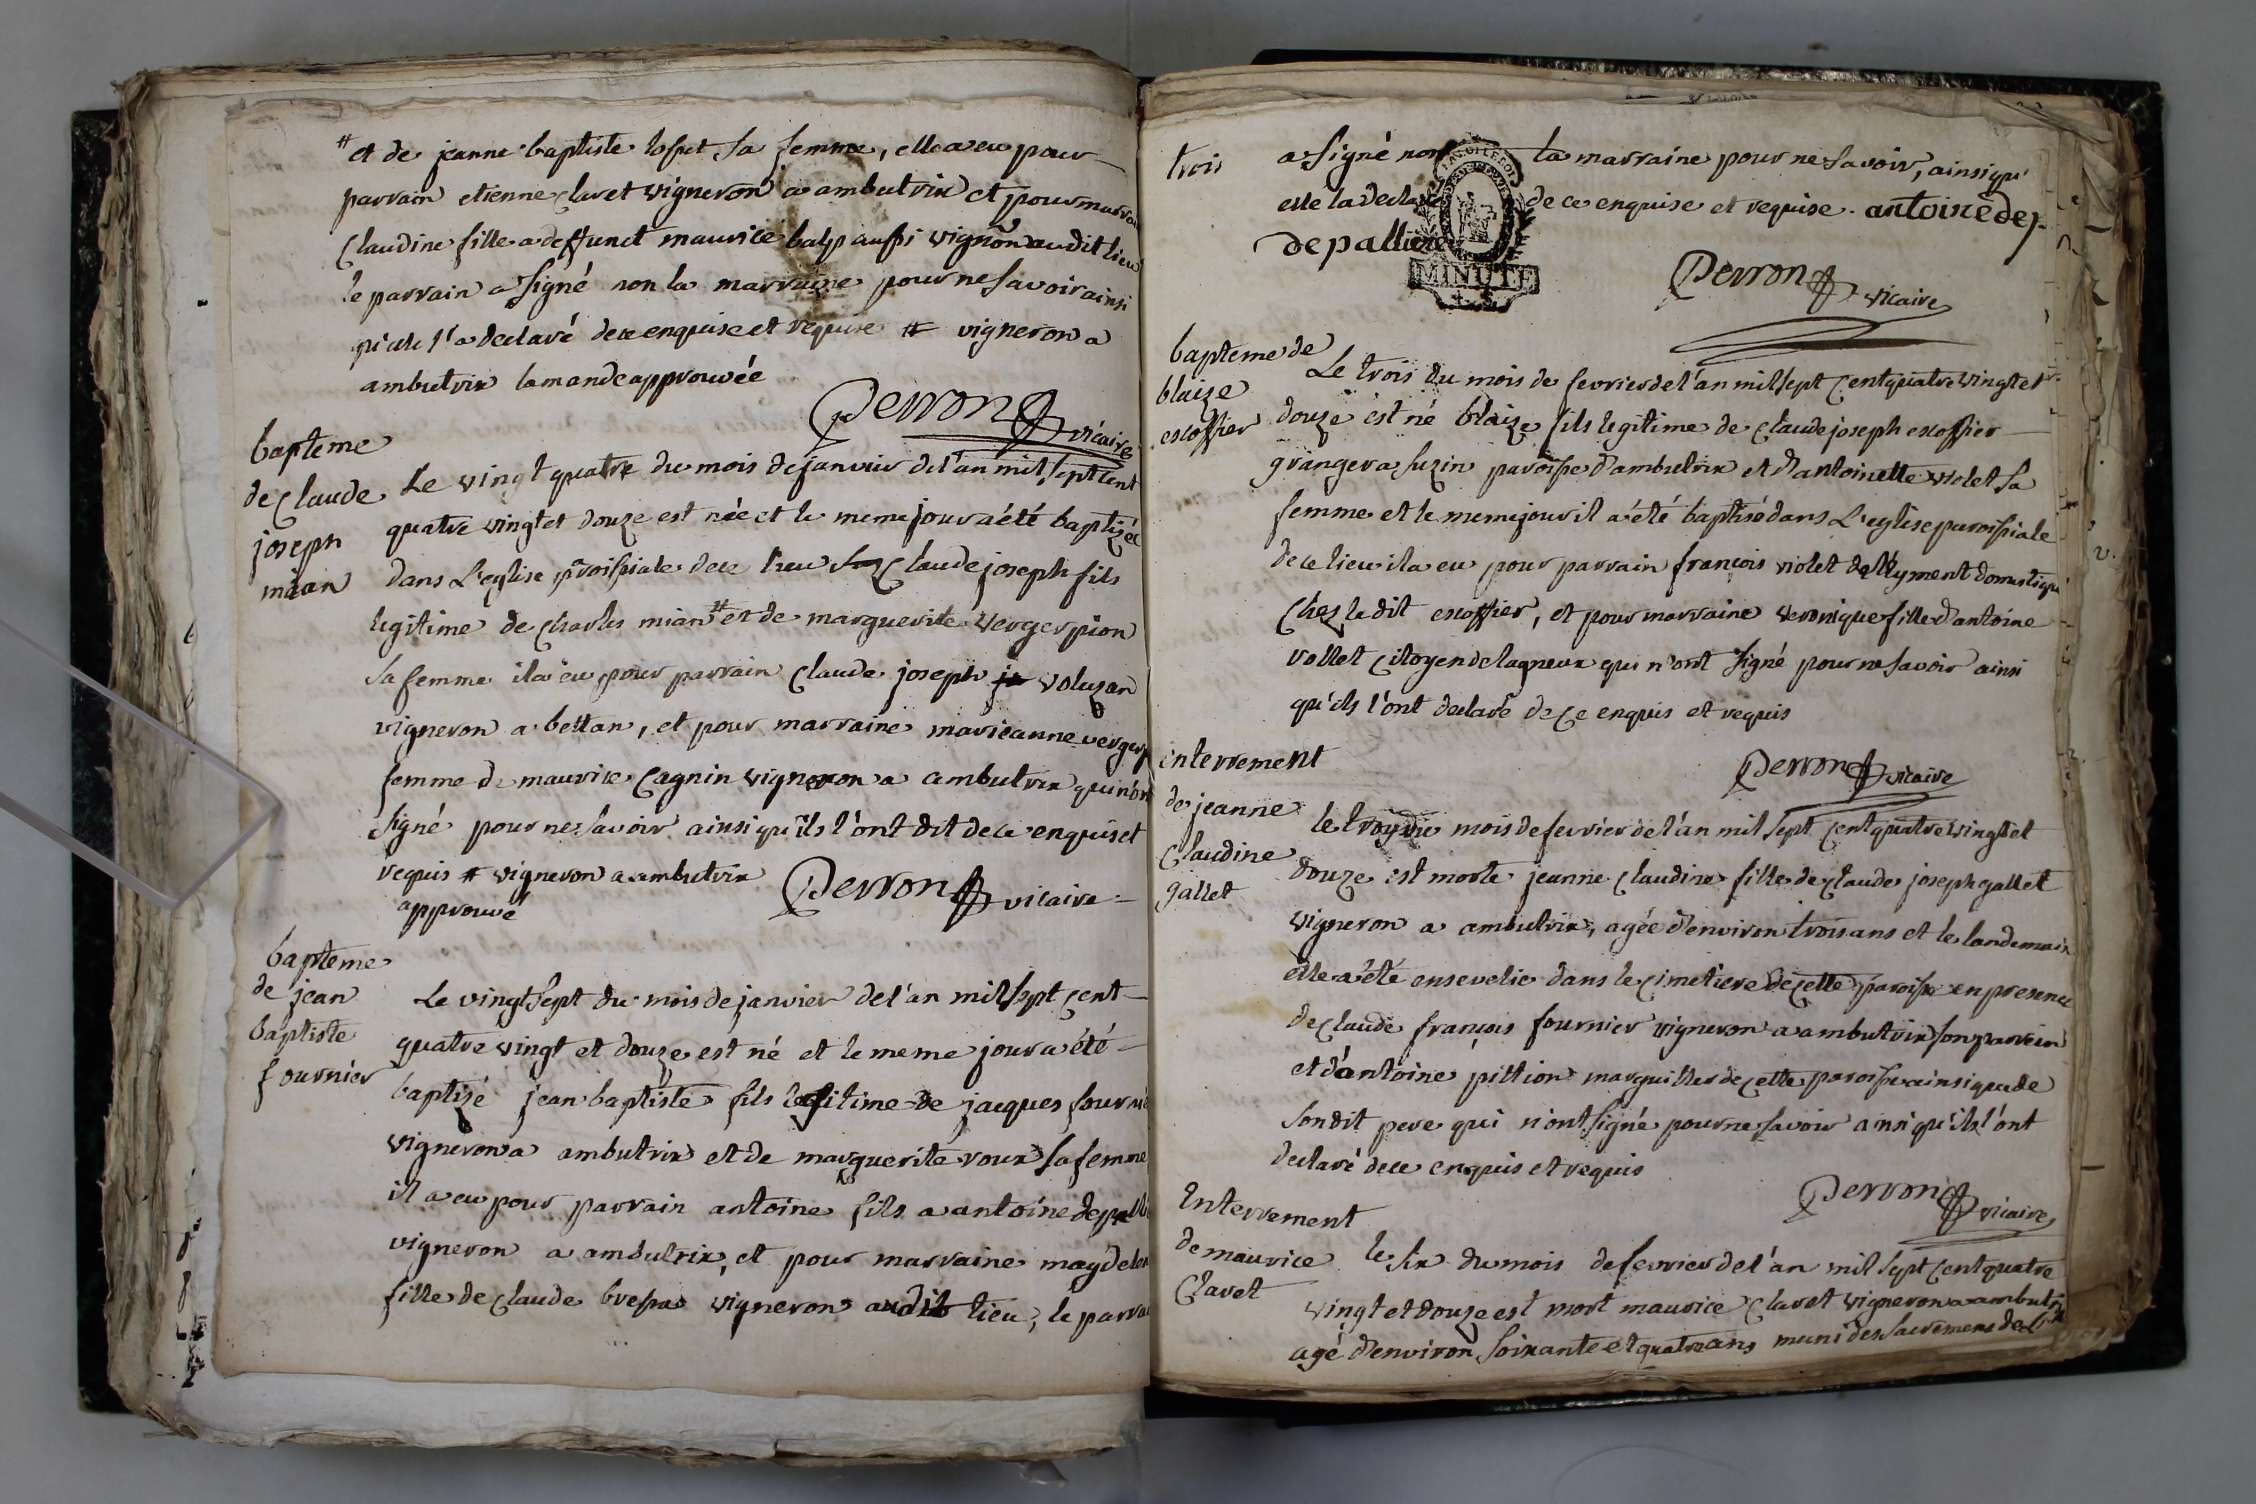 # et de jeanne baptiste sa femme, elle a eu pour
parrain etienne claret vigneron a ambutrix et pour marrai
Claudine fille a deffunct maurice balp aussi vigñon audit lieu
le parrain a signé non la marraine pour ne savoir ainsi
qu'elle l'a declaré de ce enquise et requise # vigneron a
ambutrix approuvée
Perron vicaire
bapteme
de Claude
joseph
mian
Le vingt quatre du mois de janvier de l'an mil sept cent
quatre vingt et douze est née et le meme jour a été baptizée
dans L'eglise p̃roissiale de ce lieu Claude joseph fils
legitime de Charles mian # et de marguerite vergerpion
sa femme il a eu pour parrain Claude joseph voluzan
vigneron a bettan, et pour marraine marieanne vergerp
femme de maurice Cagnin vigneron a ambutrix qui n'on
signé pour ne savoir ainsi qu'ils l'ont dit de ce enquis et
requis # vigneron a ambutrix
approuvé
Perron vicaire
bapteme
de jean
baptiste
fournier
Le vingt sept du mois de janvier de l'an mil sept cent
quatre vingt et douze est né et le meme jour a été
baptizé jean baptiste fils legitime de jacques fournie
vigneron a ambutrix et de marguerite roux sa femme
il a eu pour parrain antoine fils a antoine depalli
vigneron a ambutrix, et pour marraine magdelei
fille de Claude vigneron audit lieu, le parrai
trois
a signé non la marraine pour ne savoir, ainsi qu'
elle la declaré de ce enquise et requise. antoine de
de palliere
LA LOI LE ROI
MINUTE
Perron vicaire
bapteme de
blaize
escoffier
Le trois du mois de fevrier de l'an mil sept cent quatre vingt et
douze est né blaize fils legitime de Claude joseph escoffier
granger a suzin paroisse d'ambutrix et d'antoinette violet sa
femme et le meme jour il a été baptisé dans L'eglise paroissiale
de ce lieu il a eu pour parrain françois violet de l'eyment domestique
Chez le dit escoffier, et pour marraine veronique fille d'antoine
vollet Citoyen de lagneux qui n'ont signé pour ne savoir ainsi
qu'ils l'ont declaré de ce enquis et requis
Perron vicaire
enterrement
de jeanne
Claudine
gallet
le troy du mois de fevrier de l'an mil sept cent quatre vingt et
douze est morte jeanne Claudine fille de Claude joseph gallet
vigneron a ambutrix, agée d'environ trois ans et le landemain
elle a été ensevelie dans le cimetiere de cette paroisse en presence
de Claude françois fournier vigneron a ambutrix son parrein
et d'antoine pittion marguillier de cette paroisse ainsi que de
son dit pere qui n'ont signé pour ne savoir ainsi qu'ils l'ont
declaré de ce enquis et requis
Perron vicaire
Enterrement
de maurice
Claret
le six du mois de fevrier de l'an mil sept cent quatre
vingt et douze est mort maurice Claret vigneron a ambutrix
agé d'environ soixante et quatre ans muni des sacremens de